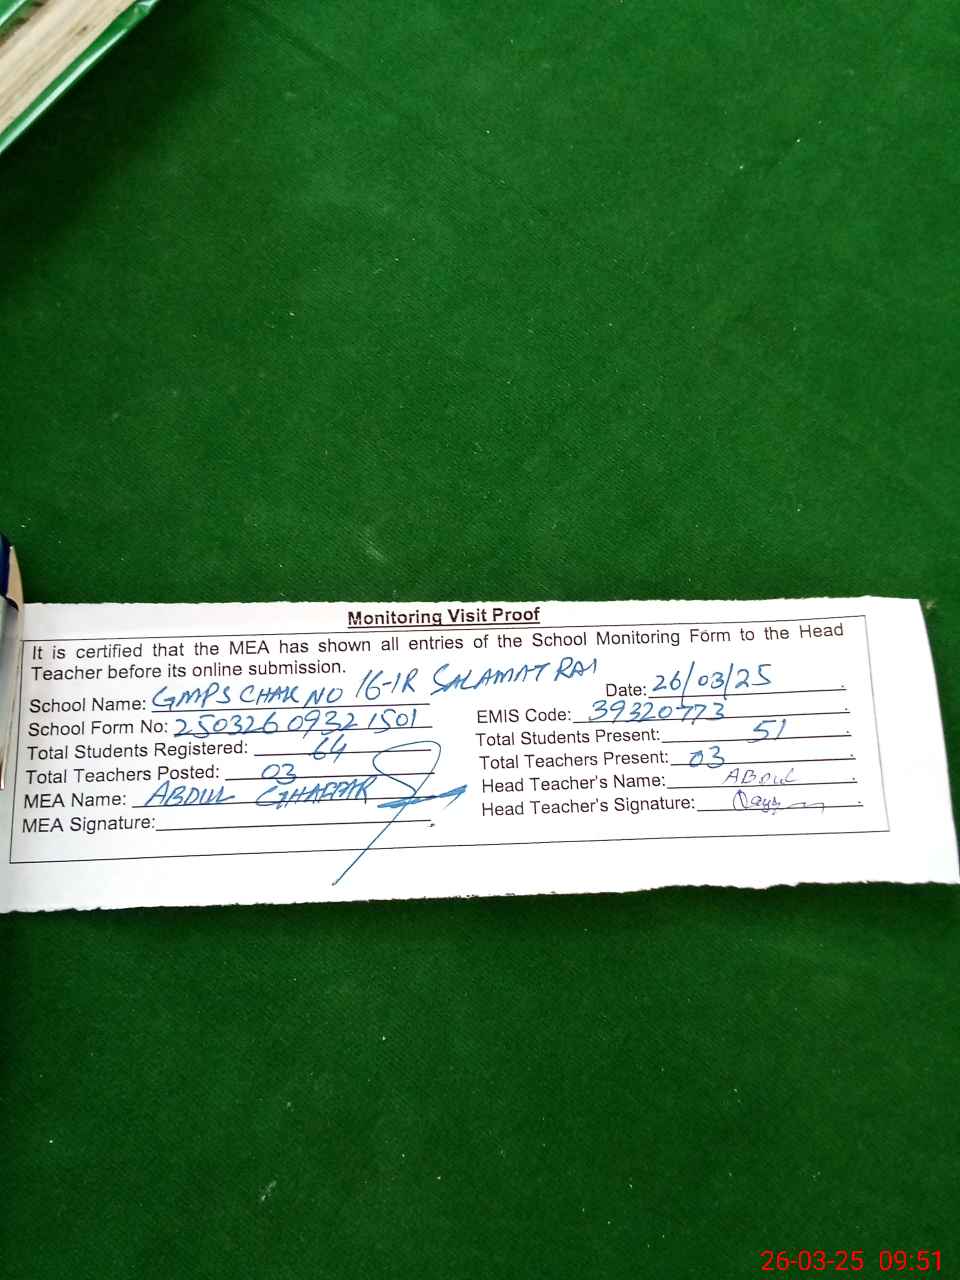 Monitoring Visit Proof
It is certified that the MEA has shown all entries of the School Monitoring Form to the Head
Teacher before its online submission.
School Name: GMPS CHAK NO 16-1R SALAMAT RAI Date: 26/03/25
School Form No: 250326 0932 1501 EMIS Code: 39320773
Total Students Registered: 64 Total Students Present: 51
Total Teachers Posted: 03 Total Teachers Present: 03
MEA Name: ABDUL GHAFFAR Head Teacher's Name: ABDUL
MEA Signature: Head Teacher's Signature:
26-03-25 09:51